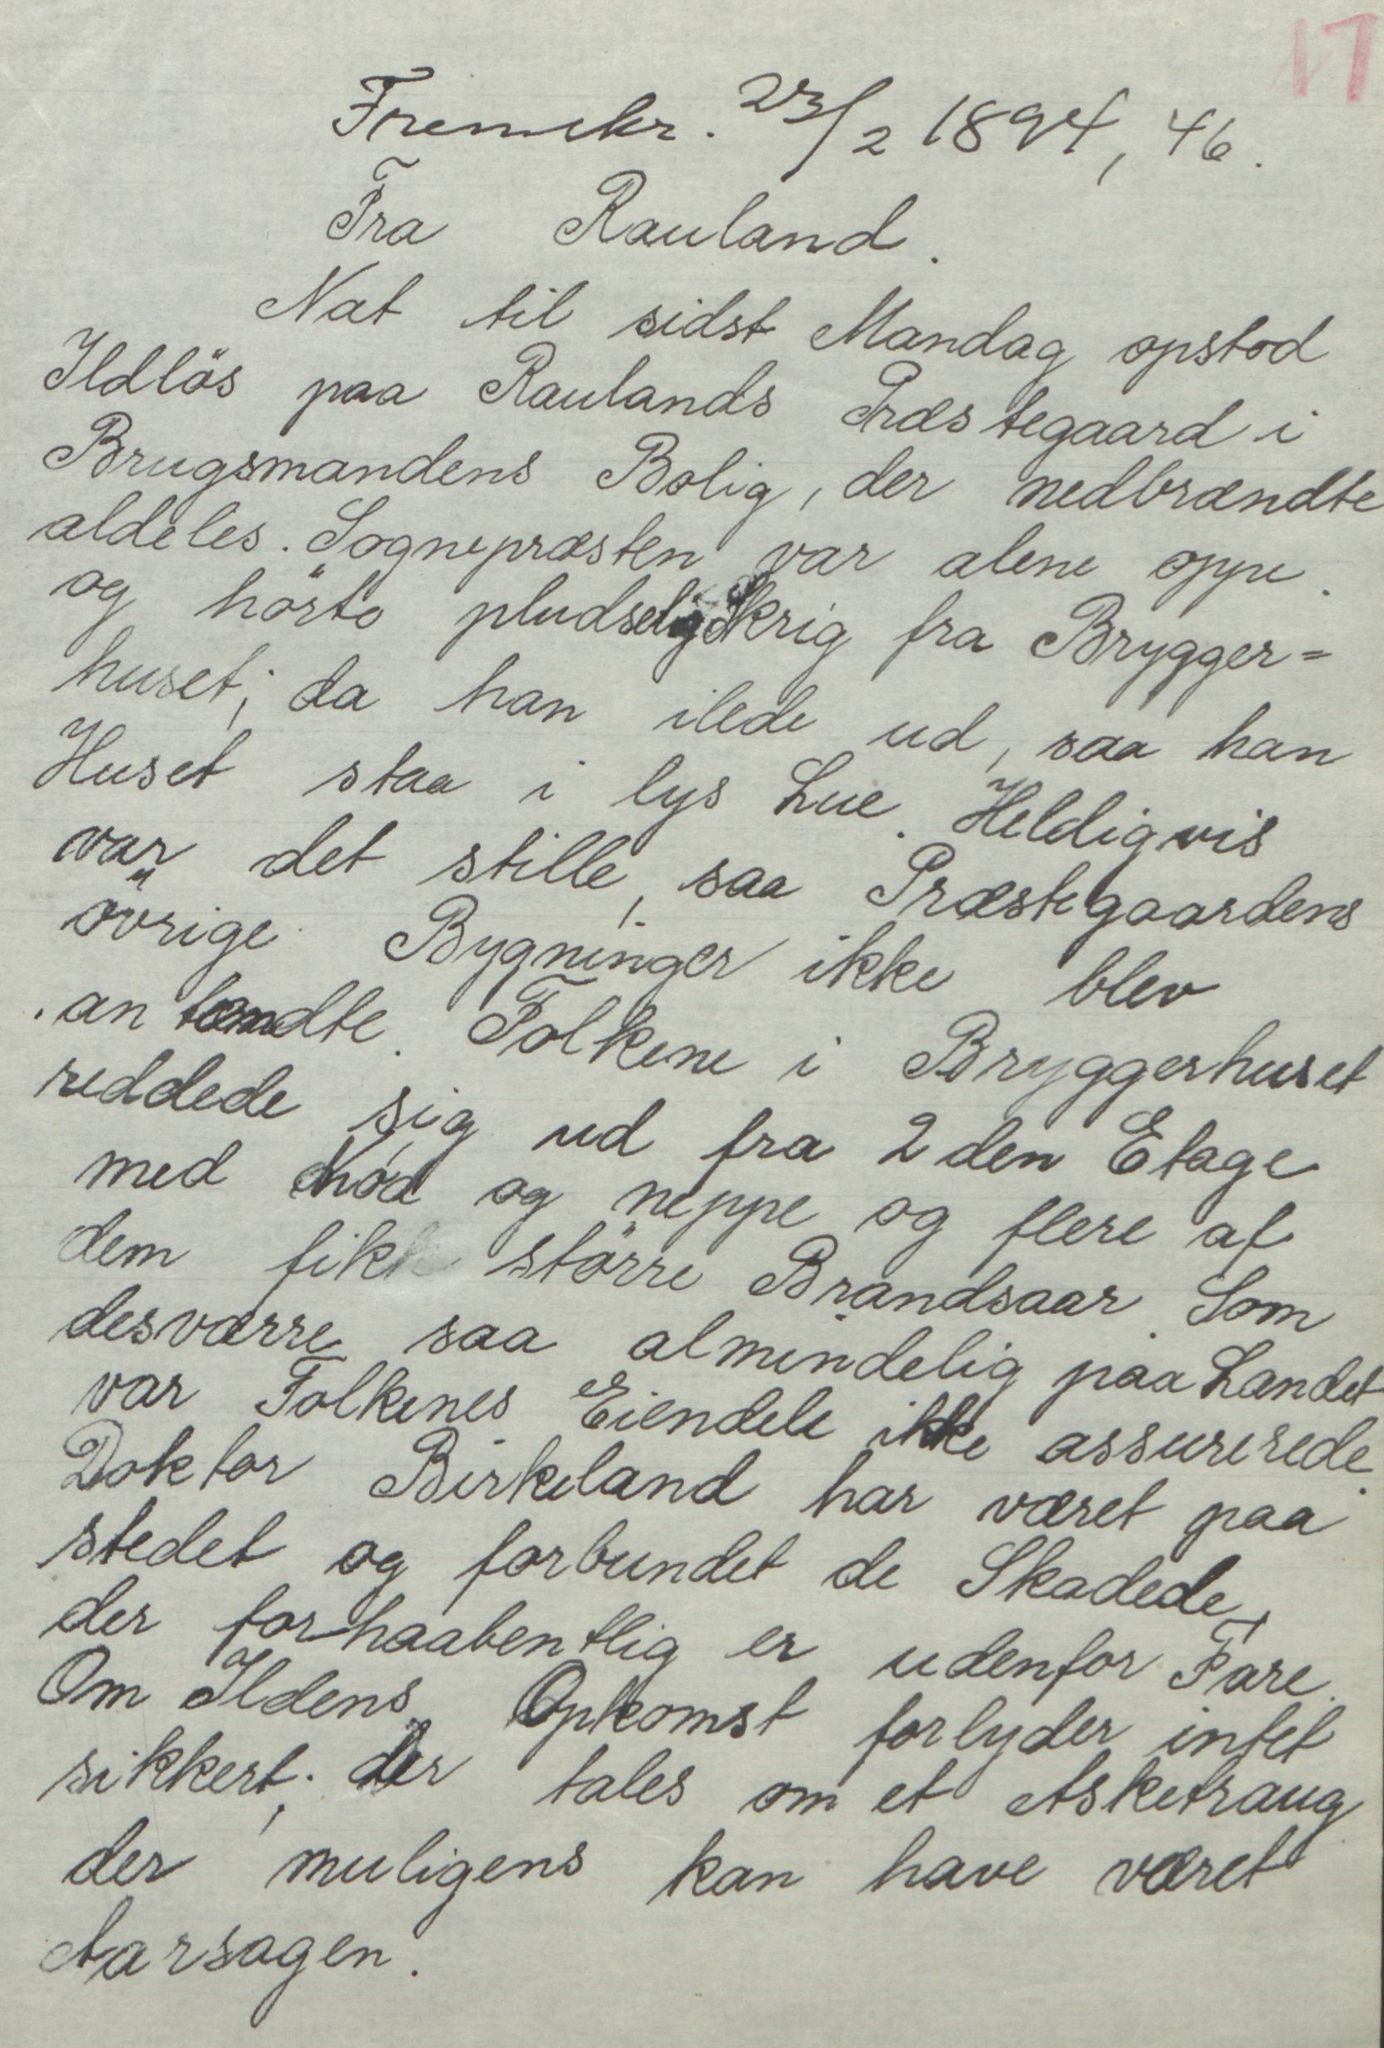 17
Fremskr. 23/2 1894, 46.
Fra Rauland.
Nat til sidst Mandag opstod
Ildlös paa Raulands Præstegaard i
Brugsmandens Bolig, der nedbrændte
aldeles. Sognepræsten var alene oppe.
og hörte pludselig Skrig fra Brygger=
huset; da han ilede ud, saa han
Huset staa i lys Lue. Heldigvis
var det stille, saa Præstegaardens
övrige Bygninger ikke blev
antændte. Folkene i Bryggerhuset
reddede sig ud fra 2den Etage
med Nöd og neppe og flere af
dem fik större Brandsaar. Som
desværre saa almindelig paa Landet
var Folkenes Eiendele ikke assurerede.
Doktor Birkeland har været paa
stedet og forbundet de Skadede,
der forhaabentlig er udenfor Fare.
Om Ildens Opkomst forlyder intet
sikkert; der tales om et Asketraug
der muligens kan have været
Aarsagen.